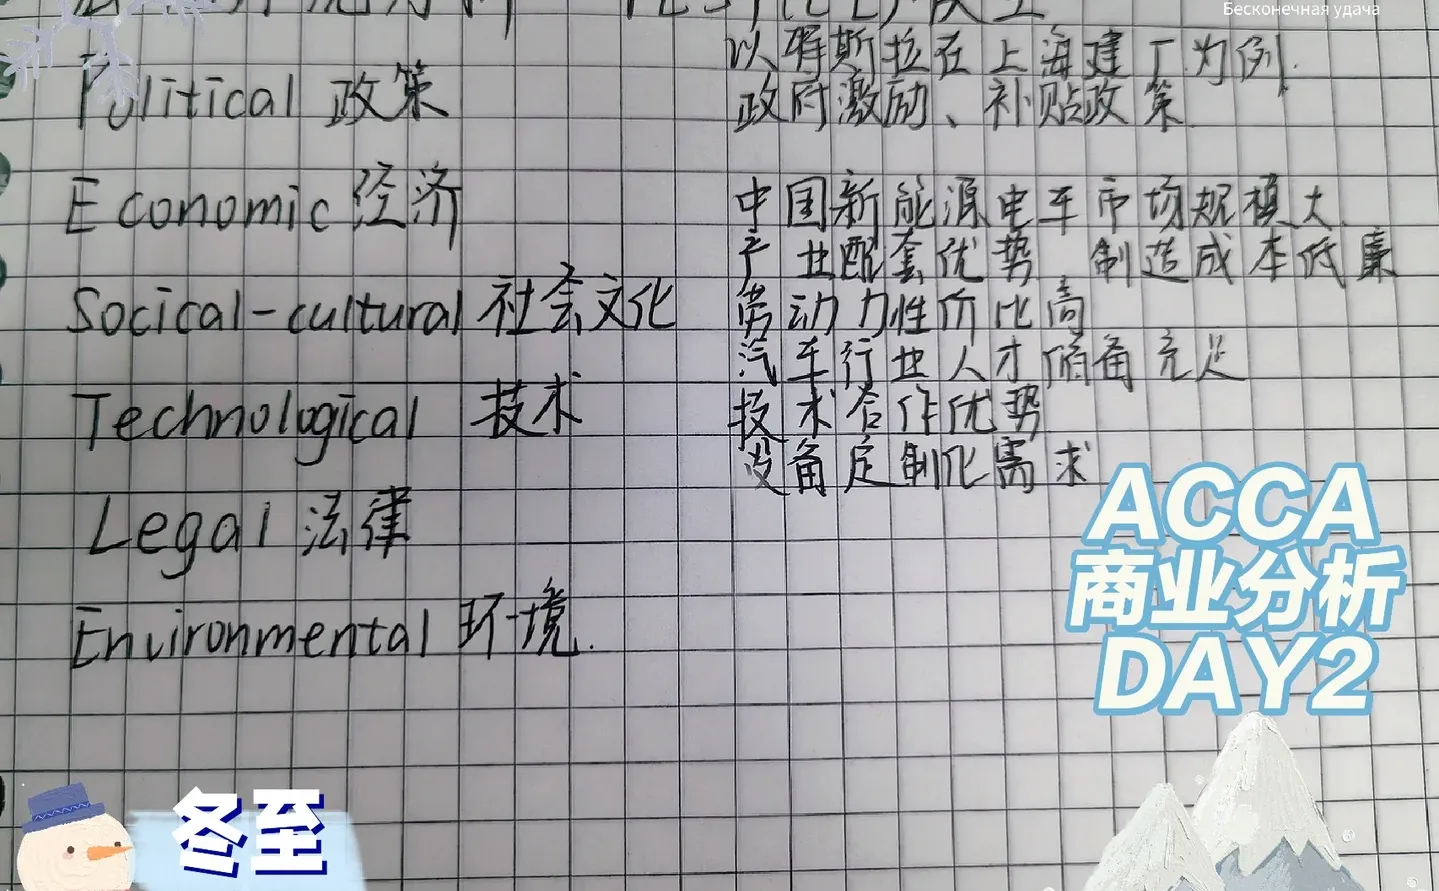 Бесконечная удача
Political 政策
Economic 经济
Socical-cultural 社会文化
Technological 技术
Legal 法律
Environmental 环境.
以特斯拉在上海建厂为例.
政府激励、补贴政策
中国新能源电车市场规模大.
产业配套优势 制造成本低廉
劳动力性价比高
汽车行业人才储备充足
技术合作优势
设备定制化需求
ACCA
商业分析
DAY2
冬至